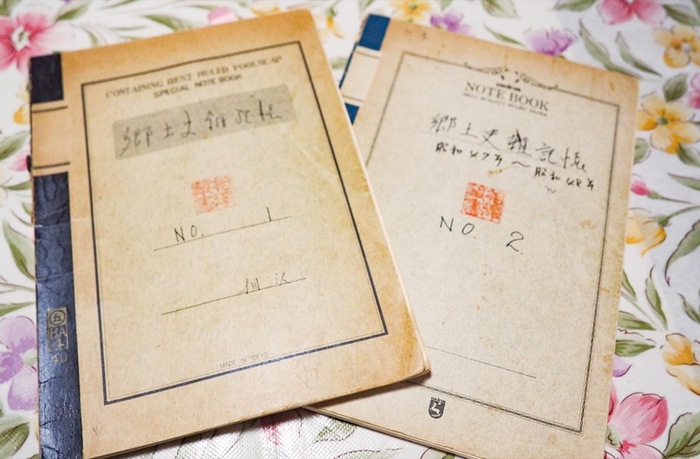 CONTAINING BEST RULED FOOLSCAP
SPECIAL NOTE BOOK
郷土史雑記帳
NO. 1
MADE IN TOKYO
NOTE BOOK
郷土史雑記帳
昭和47年～昭和48年
NO. 2